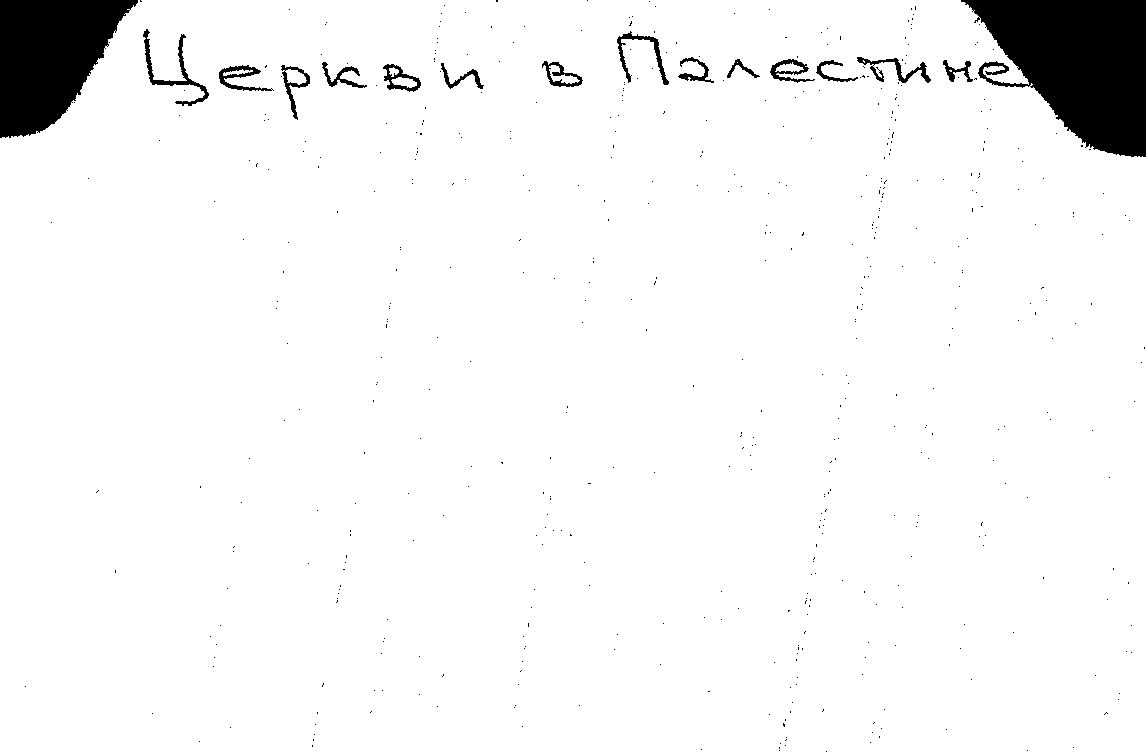 Церкви в Палестине